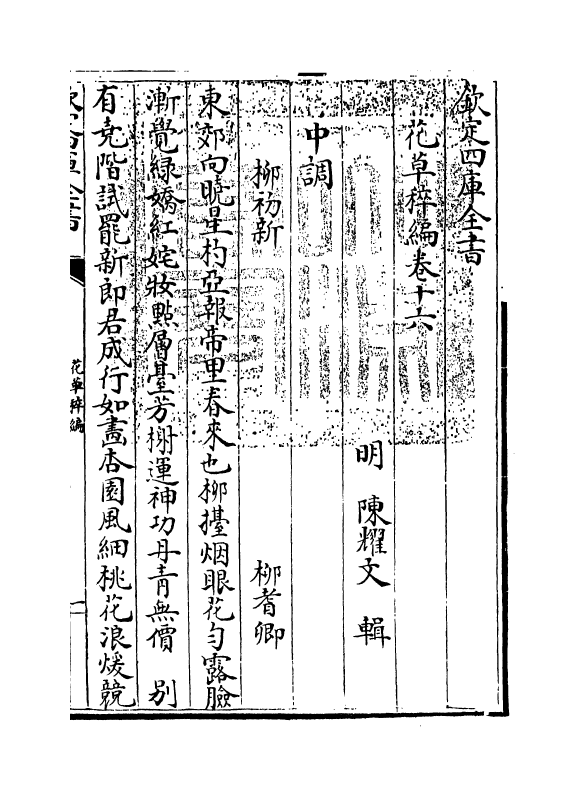 欽定四庫全書
花草稡編卷十六
明 陳耀文 輯
中調
柳初新 柳耆卿
東郊向曉星杓亞報帝里春來也柳擡烟眼花勻露臉
漸覺緑嬌紅姹妝點層臺芳榭運神功丹青無價 别
有堯階試罷新郎君成行如畫杏園風細桃花浪煖競
花草稡編